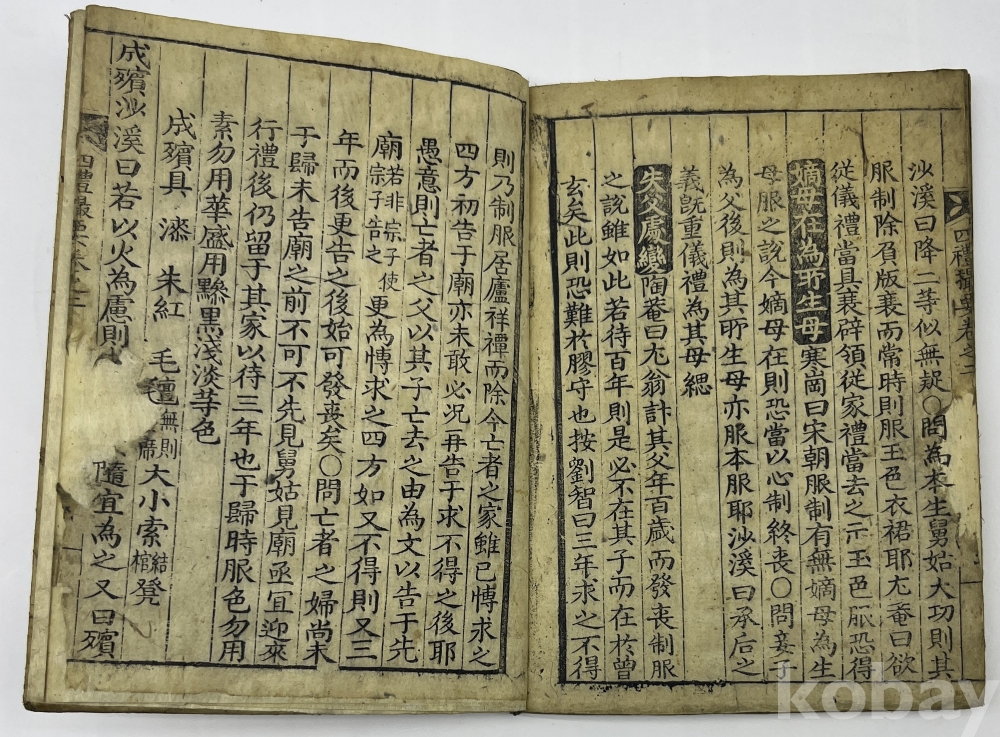 四禮撮要卷之二
沙溪曰降二等似無疑○問為本生舅姑大功則其
服制除負版衰而常時則服玉色衣裙耶尤菴曰欲
從儀禮當具衰辟領從家禮當去之示玉色服恐得
嫡母在為所生母寒岡曰宋朝服制有無嫡母為生
母服之說今嫡母在則恐當以心制終喪○問妾子
為父後則為其所生母亦服本服耶沙溪曰承后之
義旣重儀禮為其母緦
失父處變陶菴曰尤翁計其父年百歲而發喪制服
之說雖如此若待百年則是必不在其子而在於曾
玄矣此則恐難於膠守也按劉智曰三年求之不得
則乃制服居廬祥禫而除今亡者之家雖已慱求之
四方初告于廟亦未敢必况再告于求不得之後耶
愚意則亡者之父以其子亡去之由為文以告于先
廟若非宗子使宗子告之更為慱求之四方如又不得則又三
年而後更告之後始可發喪矣○問亡者之婦尚未
于歸未告廟之前不可不先見舅姑見廟亟宜迎來
行禮後仍留于其家以待三年也于歸時服色勿用
素勿用華盛用黲黑淺淡等色
成殯具 漆 朱紅 毛氊無則席大小索結棺凳
成殯沙溪曰若以火為慮則
隨宜為之又曰殯
四禮撮要卷之二
kobay